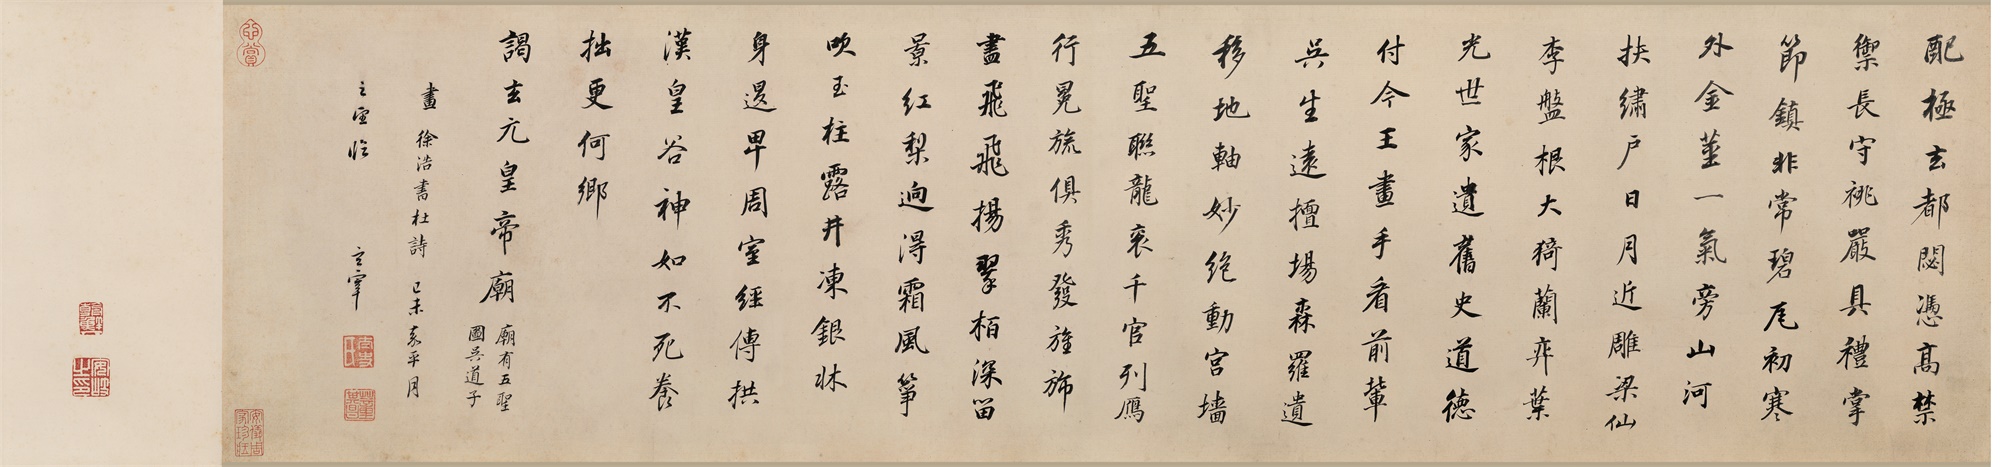 配極玄都閟憑高禁
禦長守祧嚴具禮掌
節鎮非常碧瓦初寒
外金莖一氣旁山河
扶繡戶日月近雕梁仙
李盤根大猗蘭奕葉
光世家遺舊史道德
付今王畫手看前輩
吳生遠擅場森羅遺
移地軸妙絕動宮墻
五聖聯龍衮千官列鴈
行冕旒俱秀發旌旆
盡飛飛揚翠栢深留
景紅梨迥得霜風箏
吹玉柱露井凍銀牀
身退卑周室經傳拱
漢皇谷神如不死養
拙更何鄉
謁玄元皇帝廟 廟有五聖
圖吳道子
畫 徐浩書杜詩 己未嘉平月
臨 玄宰